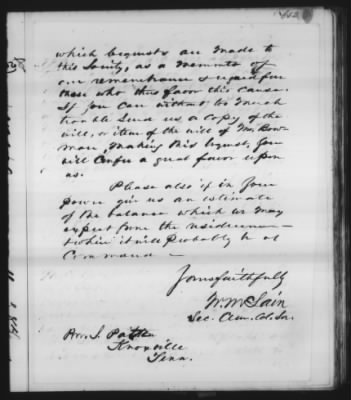 which bequests are made to
this Society, as a memento of
our remembrance & regard for
those who thus favor this cause.
If you can without too much
trouble send us a copy of the
will, or item of the will of Mr. Bow-
man, making this bequest, you
will confer a great favor upon
us.
Please also if in your
power give us an estimate
of the balance which we may
expect from the residuum —
& when it will probably be at
Command —
Yours faithfully
W. McLain
Sec. Am. Col. So.
Knoxville
Tenn.